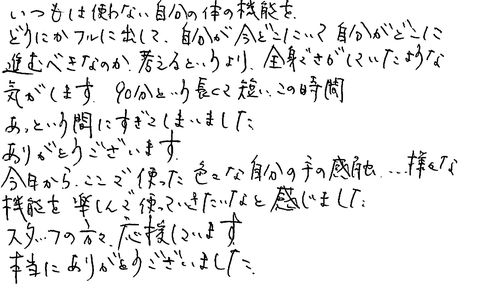 いつもは使わない自分の体の機能を、
どうにかフルに出して、自分が今どこにいて自分がどこに
進むべきなのか、考えるというより、全身でさがしていたような
気がします。90分という長くて短い、この時間
あっという間にすぎてしまいました。
ありがとうございます。
今日から、ここで使った色々な自分の手の感触、…様々な
機能を楽しんで使っていきたいなと感じました。
スタッフの方々、応援しています。
本当にありがとうございました。